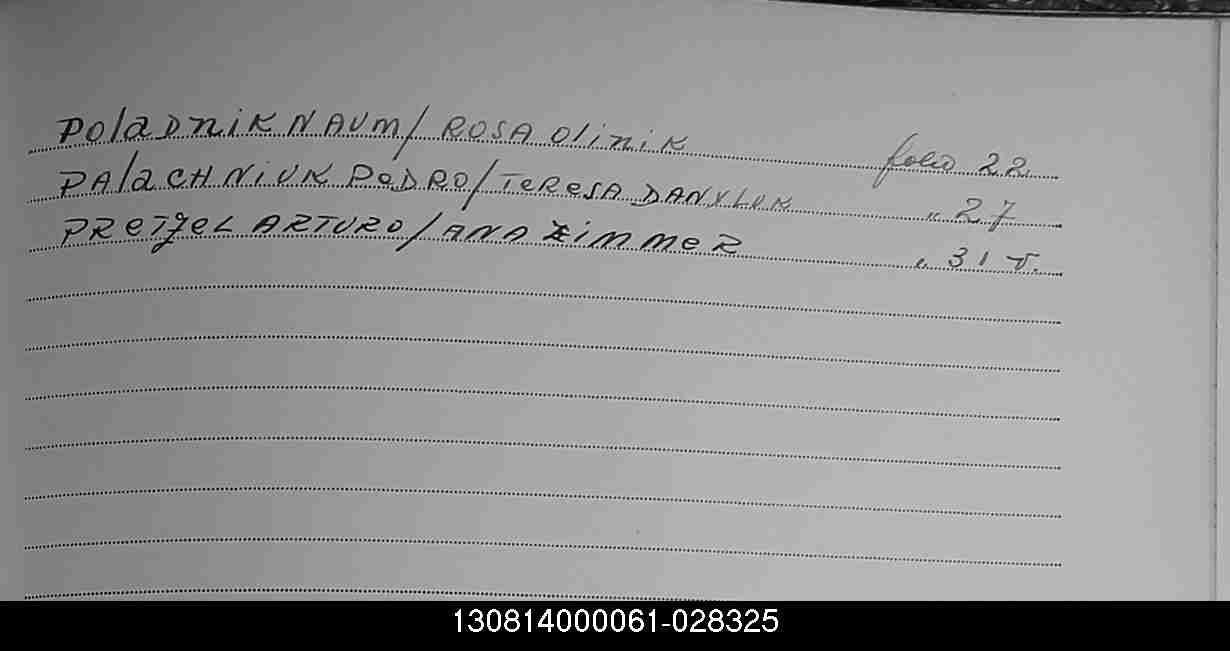 PolaDniK NAUM/ROSA Olinik folio 22
PAlaCHNiUK PeDRO/TeReSA DANYLUK " 27
PReTZeL ARTURO/ANA ZimmeR " 31 v.
130814000061-028325